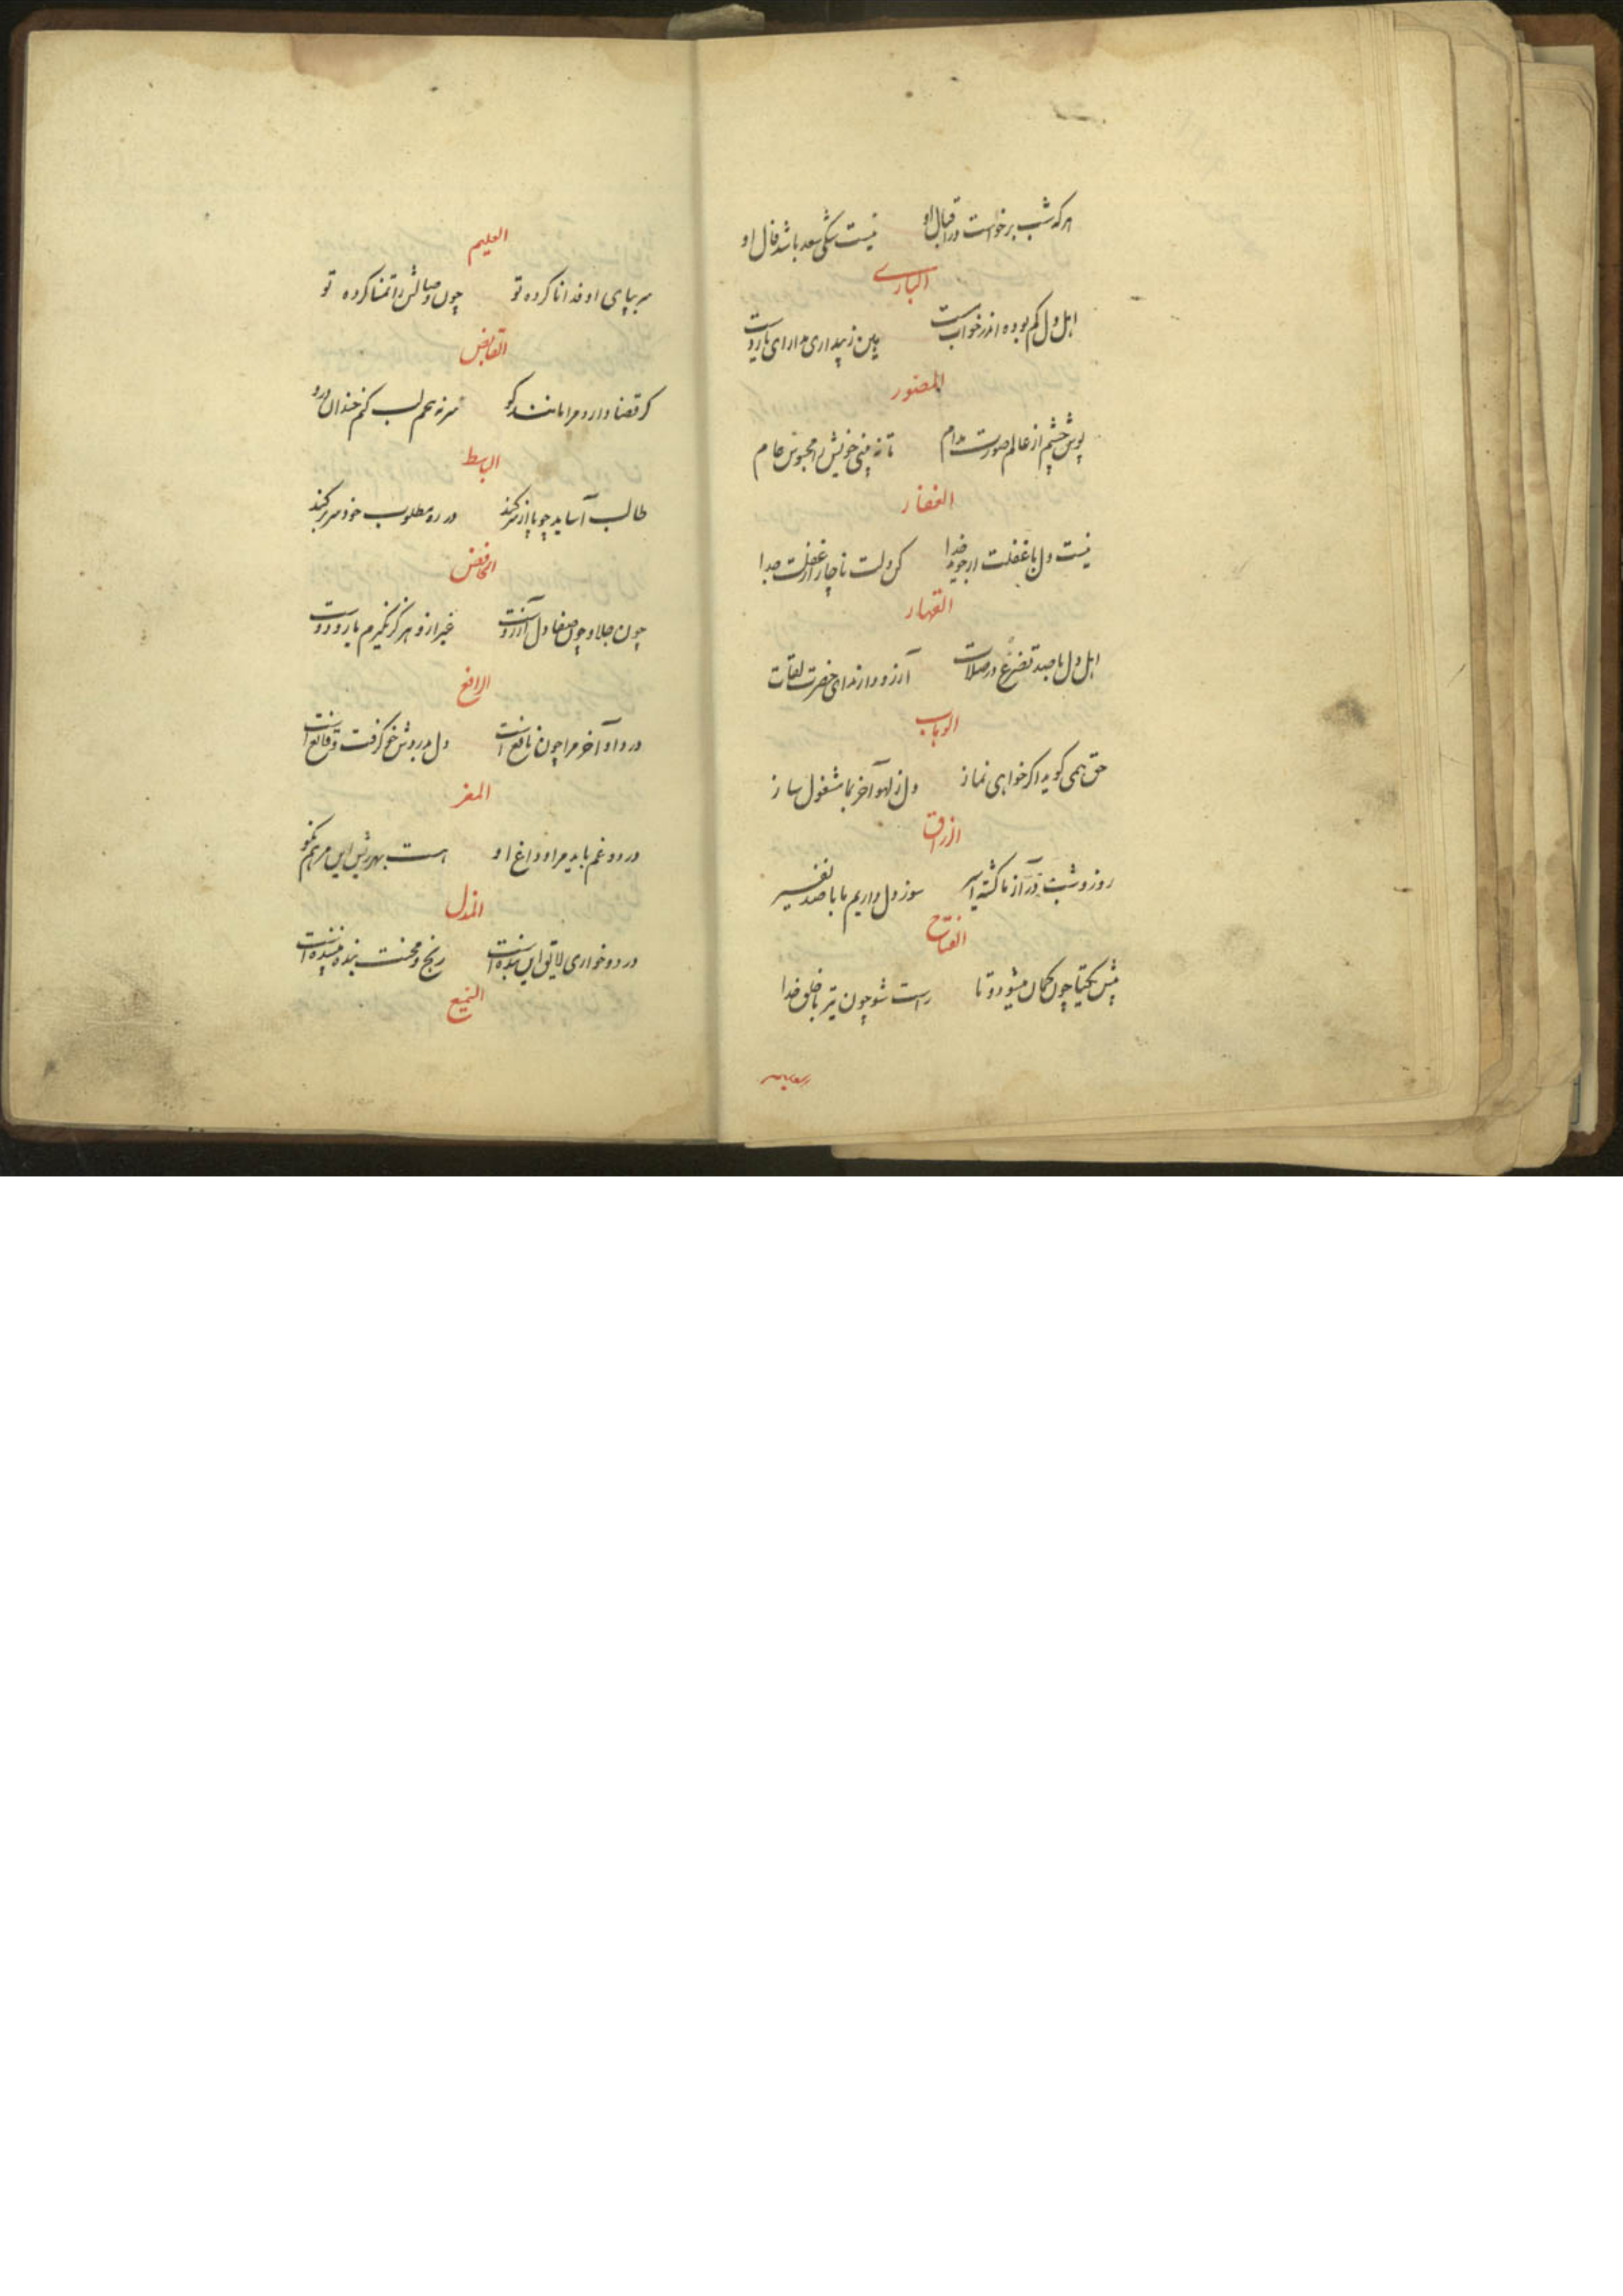 هرکه شب برخواست در اقبال او نیست شکی سعد باشد فال او
الباری
اهل دل کم بوده اند در خواب مست بین ز بیداری مدارای یار دست
المصور
پوش چشم از عالم صورت مدام تا نه بینی خویش را محبوس عام
الغفار
نیست دل با غفلت ار جوید خدا کن دلت ناچار از غفلت جدا
القهار
اهل دل با صد تضرع در صلات آرزو دارند ای حضرت لقات
الوهاب
حق همی کوید اکر خواهی نماز دل ز لهو آخر بما مشغول ساز
الرزاق
روز و شب در آز ما کشته اسیر سوز دل داریم ما با صد نفیر
الفتاح
پیش یکتا چون کمان میشو دو تا راست شو چون تیر با خلق خدا
العلیم
سر بپای او فدا نا کرده تو چون وصالش را تمنا کرده تو
القابض
کر قضا دارد مرا مانند کو سر نهم لب کنم خندان درو
الباسط
طالب آساید چو پا از سر کند در ره مطلوب خود سر بر کند
الخافض
چون جلا و چون صفا دل آرزوست غیر ازو هرکز نکیرم یار و دوست
الرافع
درد او آخر مرا چون نافع است دل بدردش خو کرفت و قانع است
المعز
درد و غم باید مرا و داغ او هست بهر ریش این مرهم نکو
المذل
درد و خواری لایق این بنده است رنج و محنت بنده را پسنده است
السمیع